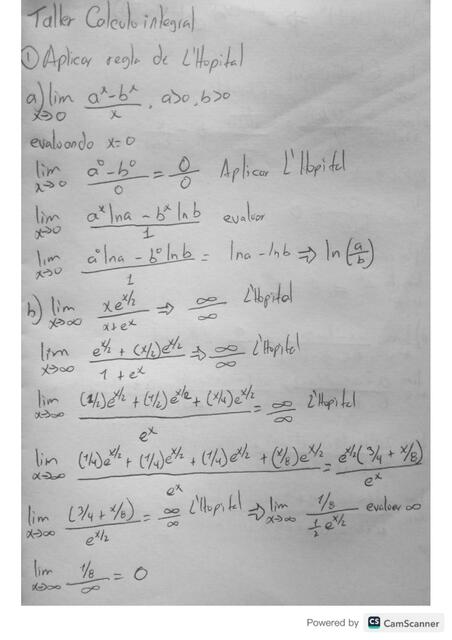 Taller Calculo integral
① Aplicar regla de L'Hopital
a) lim x→0 (a^x - b^x)/x , a>0, b>0
evaluando x=0
lim x→0 (a^0 - b^0)/0 = 0/0 Aplicar L'Hopital
lim x→0 (a^x lna - b^x lnb)/1 evaluar
lim x→0 (a^0 lna - b^0 lnb)/1 = lna - lnb ⇒ ln(a/b)
b) lim x→∞ (x e^(x/2))/(x+e^x) ⇒ ∞/∞ L'Hopital
lim x→∞ (e^(x/2) + (x/2)e^(x/2))/(1+e^x) ⇒ ∞/∞ L'Hopital
lim x→∞ ((1/2)e^(x/2) + (1/2)e^(x/2) + (x/4)e^(x/2))/e^x = ∞/∞ L'Hopital
lim x→∞ ((1/4)e^(x/2) + (1/4)e^(x/2) + (1/4)e^(x/2) + (x/8)e^(x/2))/e^x = e^(x/2)(3/4 + x/8)/e^x
lim x→∞ (3/4 + x/8)/e^(x/2) = ∞/∞ L'Hopital ⇒ lim x→∞ (1/8)/(1/2 e^(x/2)) evaluar ∞
lim x→∞ (1/8)/∞ = 0
Powered by CS CamScanner